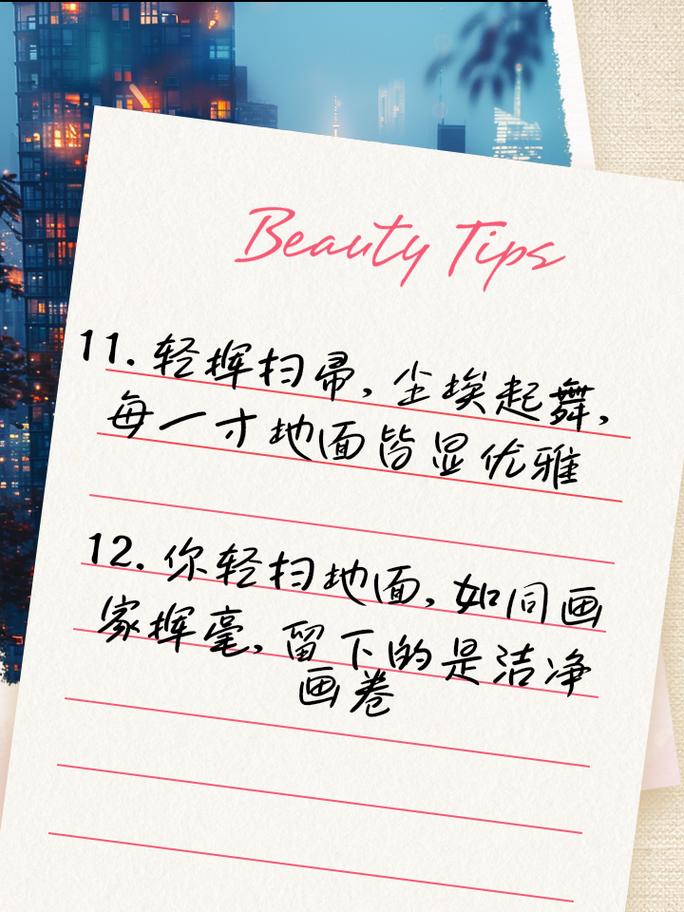 Beauty Tips
11. 轻挥扫帚，尘埃起舞，
每一寸地面皆显优雅
12. 你轻扫地面，如同画
家挥毫，留下的是洁净
画卷